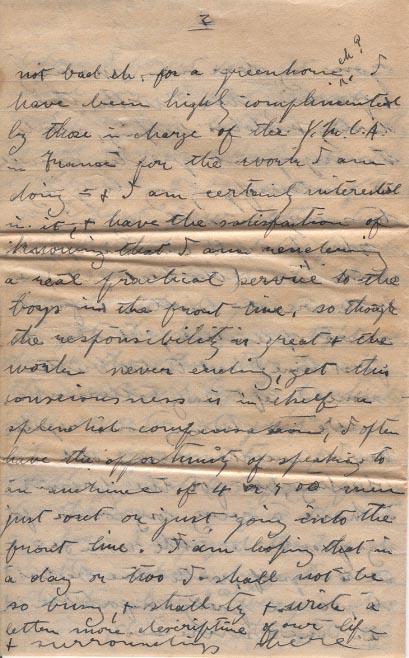 2
not bad eh, for a greenhorn, eh? I
have been highly complimented
by those in charge of the Y.M.C.A.
in France for the work I am
doing - & I am certainly interested
in it, & have the satisfaction of
knowing that I am rendering
a real practical service to the
boys in the front line, so though
the responsibility is great & the
work never ending, yet this
consciousness is in itself a
splendid compensation, I often
have the opportunity of speaking to
an audience of 4 or 500 men
just out or just going into the
front line. I am hoping that in
a day or two I shall not be
so busy, & shall try & write a
letter more descriptive of our life
& surroundings here